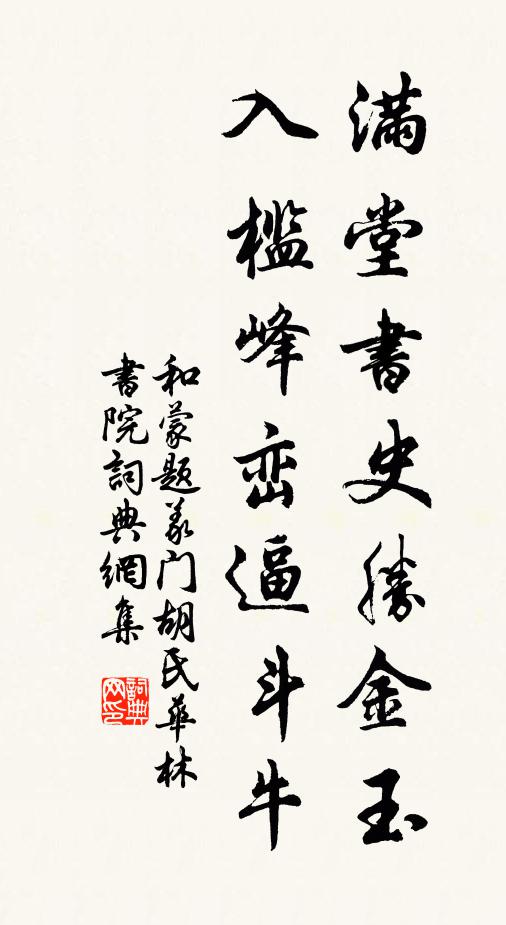 满堂書史勝金玉
入槛峰峦逼斗牛
和蒙题义门胡氏華林
書院詞典網集
詞典网印